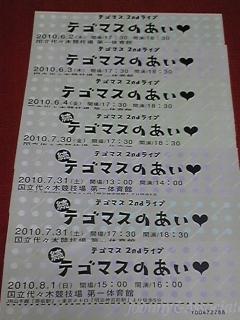 テゴマス 2ndライブ
テゴマスのあい♥
2010.6.2(水) 開場17:30 開演18:30
国立代々木競技場 第一体育館
テゴマス 2ndライブ
テゴマスのあい♥
2010.6.3(木) 開場17:30 開演18:30
テゴマス 2ndライブ
テゴマスのあい♥
2010.6.4(金) 開場17:30 開演18:30
テゴマス 2ndライブ
続 テゴマスのあい♥
2010.7.30(金) 開場17:30 開演18:30
テゴマス 2ndライブ
続 テゴマスのあい♥
2010.7.31(土) 開場13:00 開演14:00
国立代々木競技場 第一体育館
テゴマス 2ndライブ
続 テゴマスのあい♥
2010.7.31(土) 開場17:30 開演18:30
国立代々木競技場 第一体育館
テゴマス 2ndライブ
続 テゴマスのあい♥
2010.8.1(日) 開場15:00 開演16:00
国立代々木競技場 第一体育館